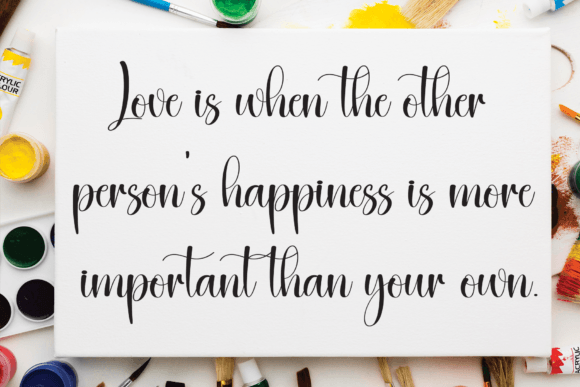 Love is when the other
person's happiness is more
important than your own.
ACRYLIC
COLOUR
ACRYLIC